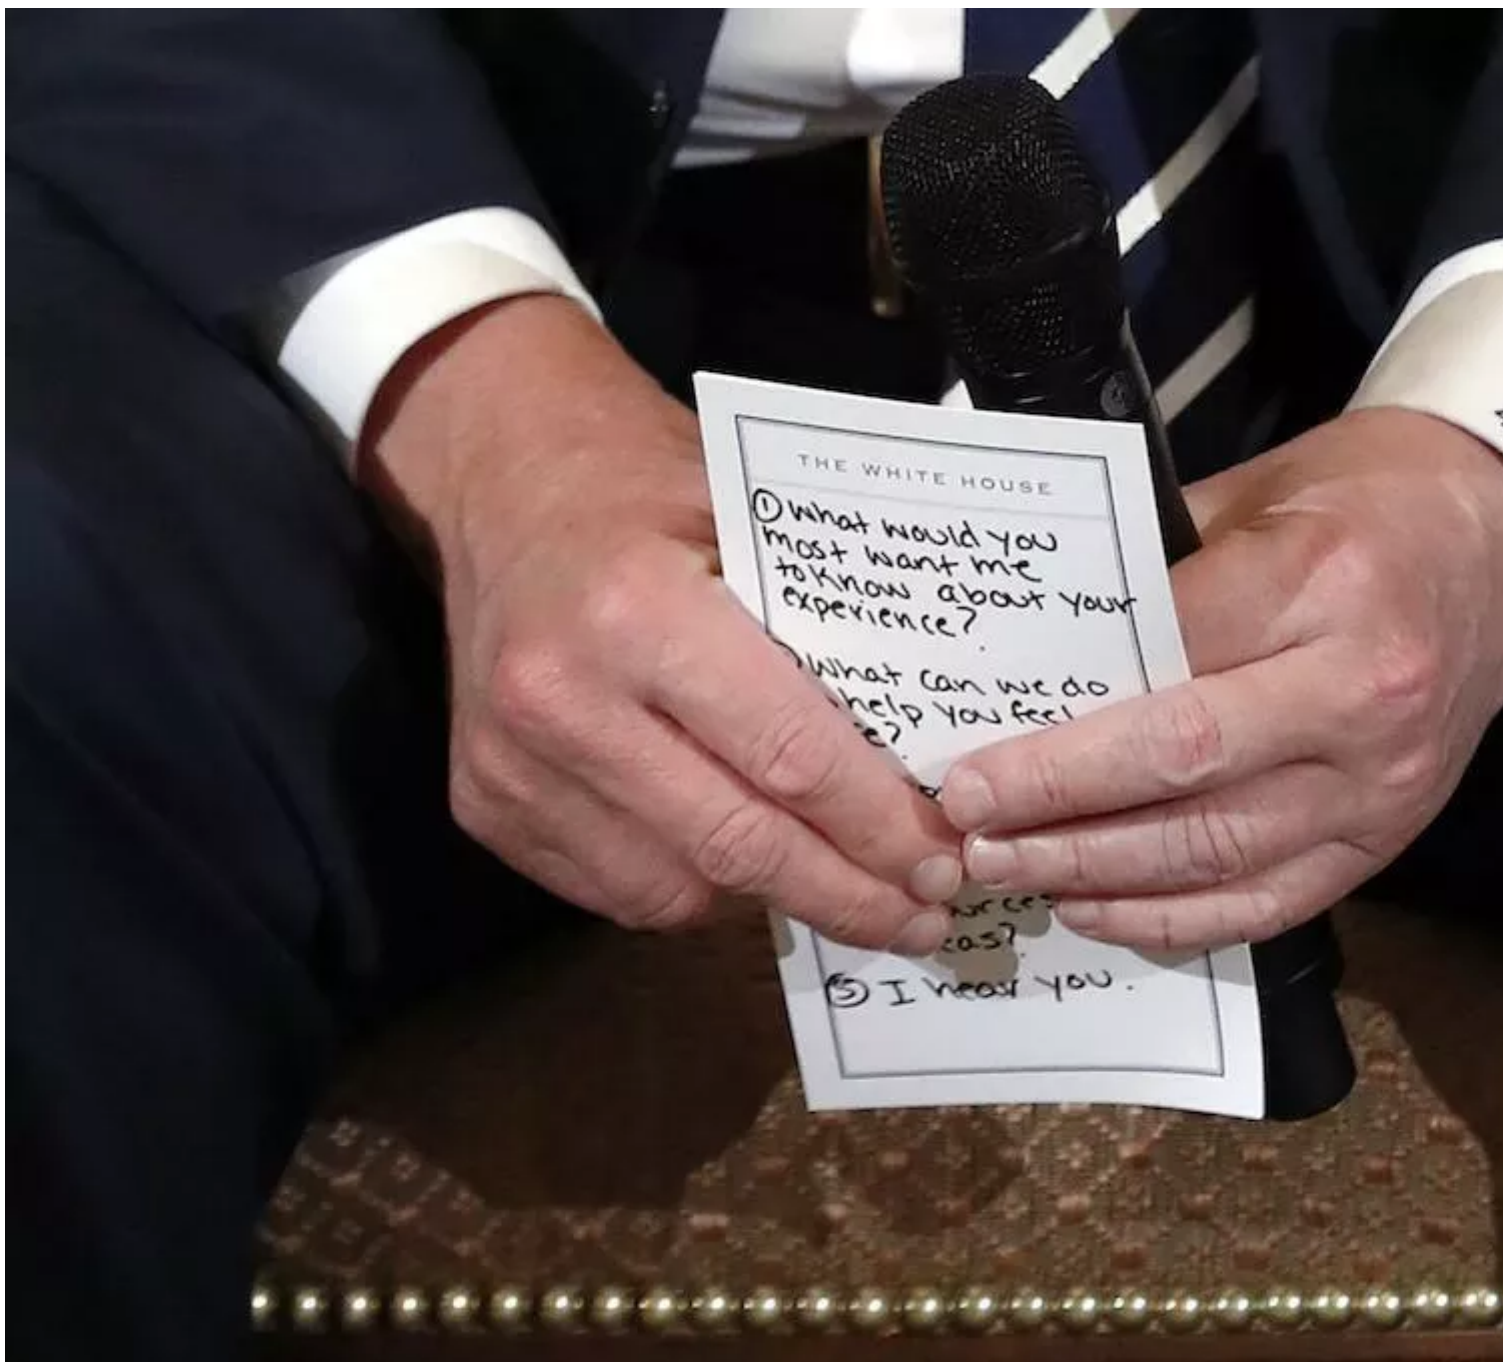 THE WHITE HOUSE
① What would you
most want me
to know about your
experience?
What can we do
help you feel
⑤ I hear you.